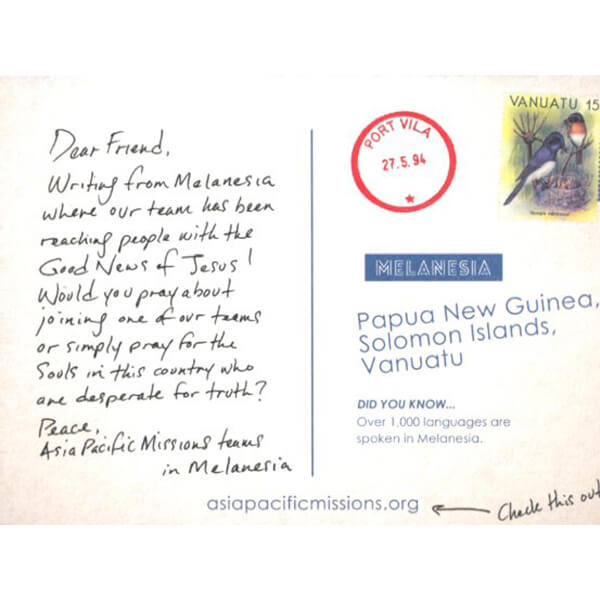 Dear Friend,
Writing from Melanesia
where our team has been
reaching people with the
Good News of Jesus!
Would you pray about
joining one of our teams
or simply pray for the
Souls in this country who
are desperate for truth?
Peace,
Asia Pacific Missions teams
in Melanesia
PORT VILA
27.5.94
VANUATU 15
MELANESIA
Papua New Guinea,
Solomon Islands,
Vanuatu
DID YOU KNOW...
Over 1,000 languages are
spoken in Melanesia.
asiapacificmissions.org
Check this out